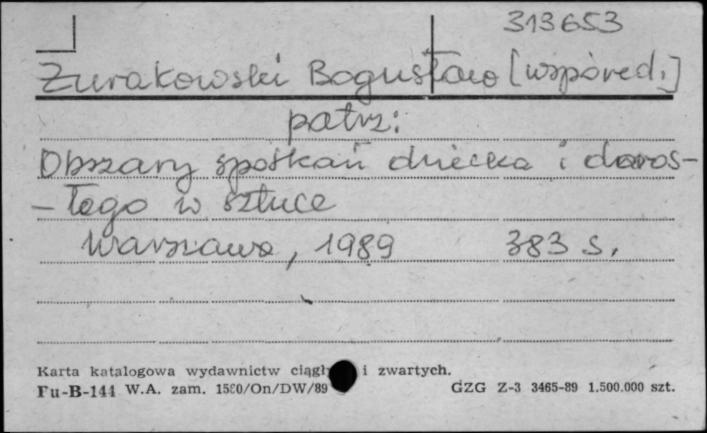 313653
Żurakowski Bogusław [współred.]
patrz:
Obszary spotkań dziecka i doros-
-łego w sztuce
Warszawa, 1989 383 s.
Karta katalogowa wydawnictw ciągły i zwartych.
Fu-B-144 W.A. zam. 1580/On/DW/89 GZG Z-3 3465-89 1.500.000 szt.